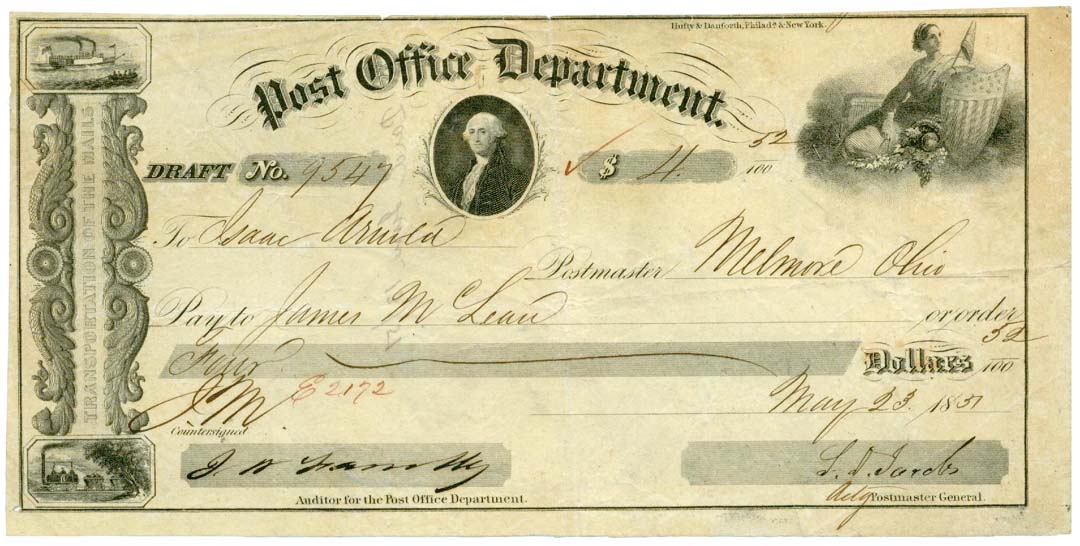 Hufty & Danforth, Philadª. & New York.
Post Office Department.
TRANSPORTATION OF THE MAILS
DRAFT No. 9547
$ 4. 52/100
To Isaac Arnold
Postmaster Melmore Ohio
Pay to James McLean or order
Four Dollars 52/100
J M E 2172
May 23. 1851
Countersigned
J W
Auditor for the Post Office Department.
S. D. Jacobs
Actg Postmaster General.